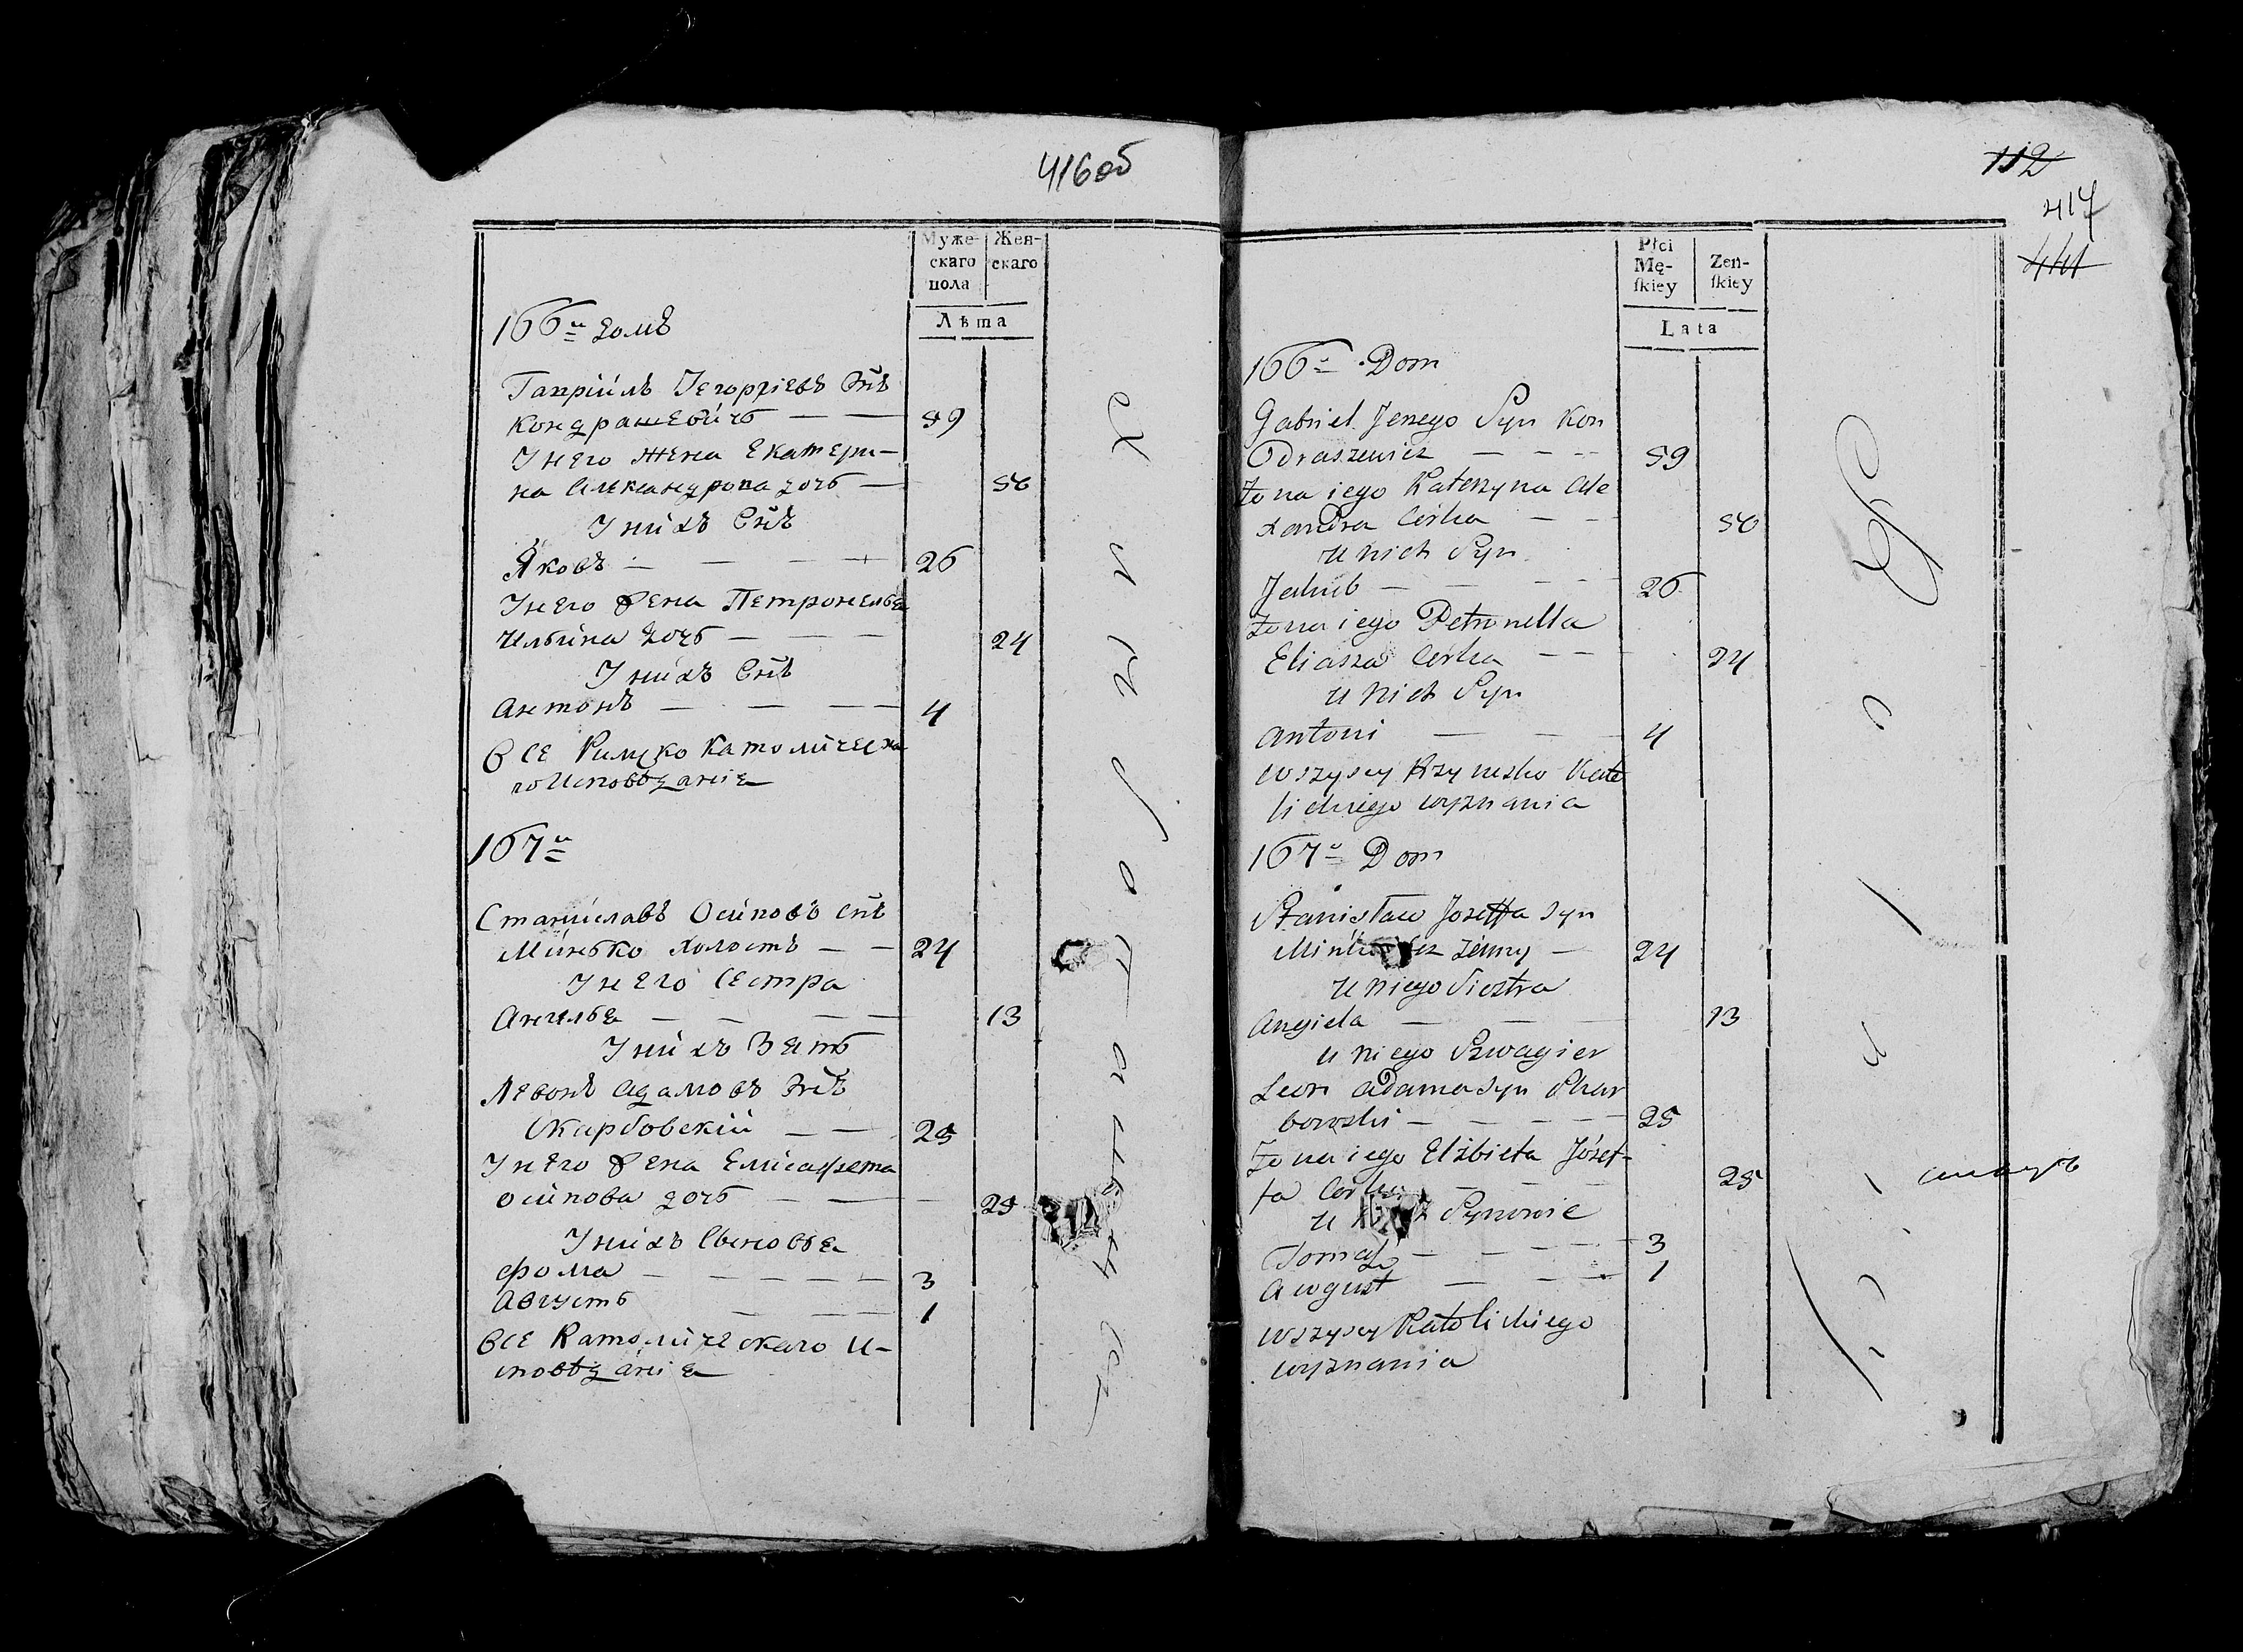 416 об
Муже-
скаго
пола
Жен-
скаго
Лѣта
166й домъ
Гаврійлъ Іегоргіевъ Снъ
Кондрашевичъ — — 59
У него жена Екатери-
на Александрова дочь — 50
У нихъ Снъ
Яковъ — — — 26
У него жена Петронелья
Ильина дочь — — — 24
У нихъ Снъ
Антонъ — — — 4
Все Римско Католическа
го Исповѣданія
167й
Станиславъ Осиповъ Снъ
Минько холостъ — — 24
У него Сестра
Ангелья — — — 13
У нихъ Зять
Левонъ Адамовъ Снъ
Скарбовскій — — 25
У него жена Елисафета
Осипова дочь — — — 25
У нихъ Сыновья
Фома — — — — — 3
Августъ — — — 1
Все Католическаго И-
сповѣданія
112
417
441
Płci
Mę-
ſkiey
Zeń-
ſkiey
Lata
166у Dom
Gabriel Jerzego Syn Kon
Odraszewicz — — — 59
Żona iego Katerzyna Ale
xandra Corka — — 50
u nich Syn
Jakub — — — — 26
Żona iego Petronella
Eliasza Corka — — 24
u nich Syn
Antoni — — — 4
wszyscy Rzymsko Kato
lickiego wyznania
167у Dom
Stanisław Joseffa Syn
Minko bez żenny — 24
u niego Siostra
Angiela — — — 13
u niego Szwagier
Leon Adama Syn Skar
bowski — — — — — 25
Żona iego Elżbieta Józef-
fa Corka — — — 25
u Synowie
Tomasz — — — — — 3
August — — — 1
wszyscy Katolickiego
wyznania